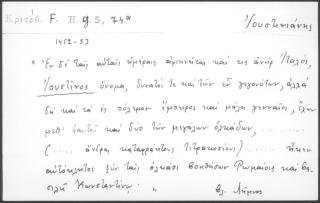 Κριτόβ. F. II. g. 5, 74α Ἰουστινιάνης
1452-53
"Ἐν δὲ ταῖς αὐταῖς ἡμέραις ἀφικνεῖται καί τις ἀνὴρ Ἰταλός,
Ἰουστῖνος ὄνομα, δυνατός τε καὶ τῶν εὖ γεγονότων, ἀλλὰ
δὴ καὶ τὰ ἐς πόλεμον ἔμπειρος καὶ μάλα γενναῖος, ἔχων
μεθ' ἑαυτοῦ καὶ δύο τῶν μεγάλων ὁλκάδων, .........
(..... ἄνδρας καταφράκτους τετρακοσίους) ..... ἧκεν
αὐτόκλητος ξὺν ταῖς ὁλκάσι βοηθήσων Ῥωμαίοις καὶ βα-
σιλεῖ Κωνσταντίνῳ. " βλ. Λῆμνος